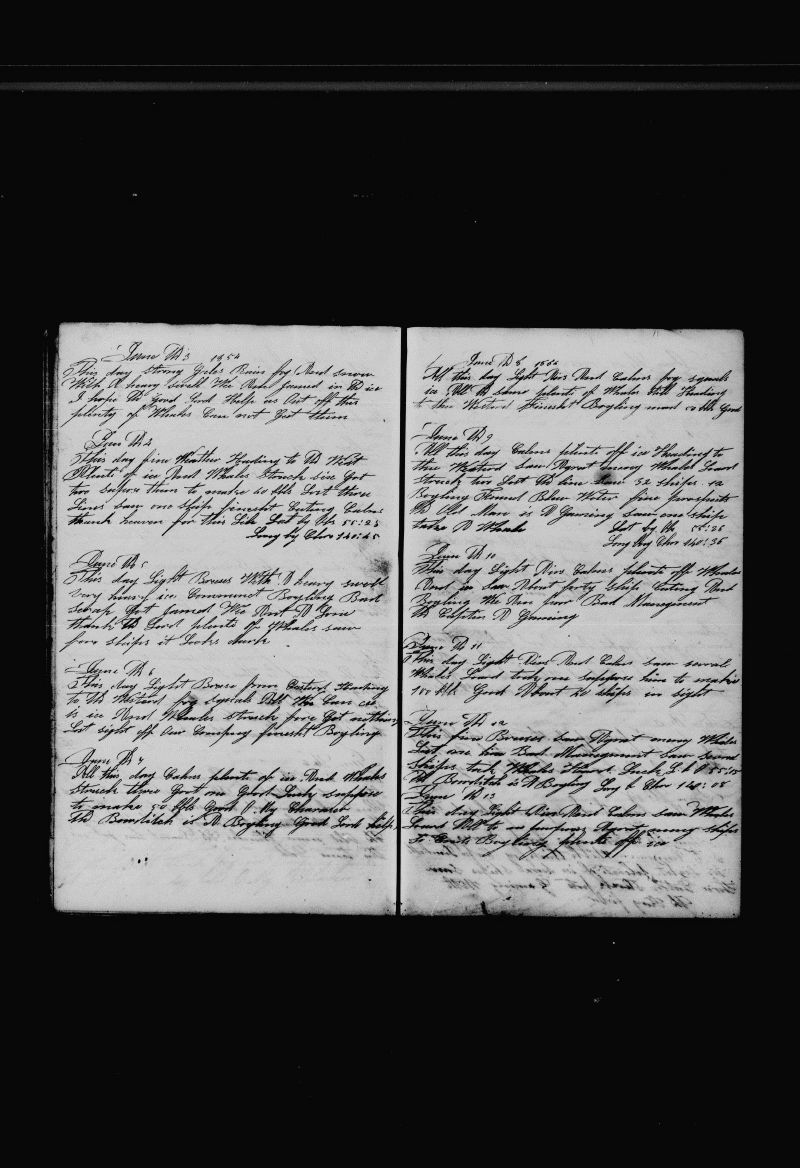 June Th 3 1854
This day Strong Gales Rain fog And snow
With A heavy swell We Are Jamed in Th ice
I hope Th Good Lord Helps us Out off this
plenty of Whales Can not Get them
June Th 4
This day fine Weather Heading to Th West
Plenty of ice And Whales Struck five Got
two suppose them to make 60 bbls Lost three
Lines saw one ship finesht Cuting Calms
thank heaven for this Life Lat by Ob 55:25
Long by Chro 140:45
June Th 5
This day Light Breses With A heavy swell
very heavy ice Commenct Boyling Bad
scrap Got Jamed We Don't A Gone
thank Th Lord plenty of Whales saw
four ships it Looks dark
June Th 6
This day Light Brese from Eastard Heading
to Th Westard fog squals All We Can see
is ice And Whales Struck four Got nothing
Lost sight off Our Company finesht Boyling
June Th 7
All this day Calms plenty of ice And Whales
Struck three Got one Good Luck suppose
to make 50 bbls Good
Th Bowditch is A Boyling Good Lord help
June Th 8 1854
All this day Light Airs And Calms fog squals
ice All A plenty of Whales still Heading
to the Westard Finesht Boyling mad 50 bbls Good
June Th 9
All this day Calms plenty off ice Heading to
the Westard saw A Great many Whales Loard
Struck two Lost Th Line saw 32 ships 12
Boyling Around Blue Water fine prospects
Th Old Man is A Growling saw one ship
take A Whale Lat by Ob 55:25
Long by Chro 140:35
June Th 10
This day Light Airs Calms plenty off Whales
And ice saw About forty ships Cuting And
Boyling We Are poor Bad Managment
Th Captin A Growling
June Th 11
This day Light Airs And Calms saw several
Whales Loard took one suppose him to make
100 bbls Good About 20 ships in sight
June Th 12
This fine Breses saw A great many Whales
Lost one Line Bad Management saw several
ships take Whales Hard Luck L b O 55:15
Th Bowditch is A Boyling Log b Chro 140:08
June Th 13
This day Light Airs And Calms saw Whales
Loard All to no purpose A great many ships
plenty off ice